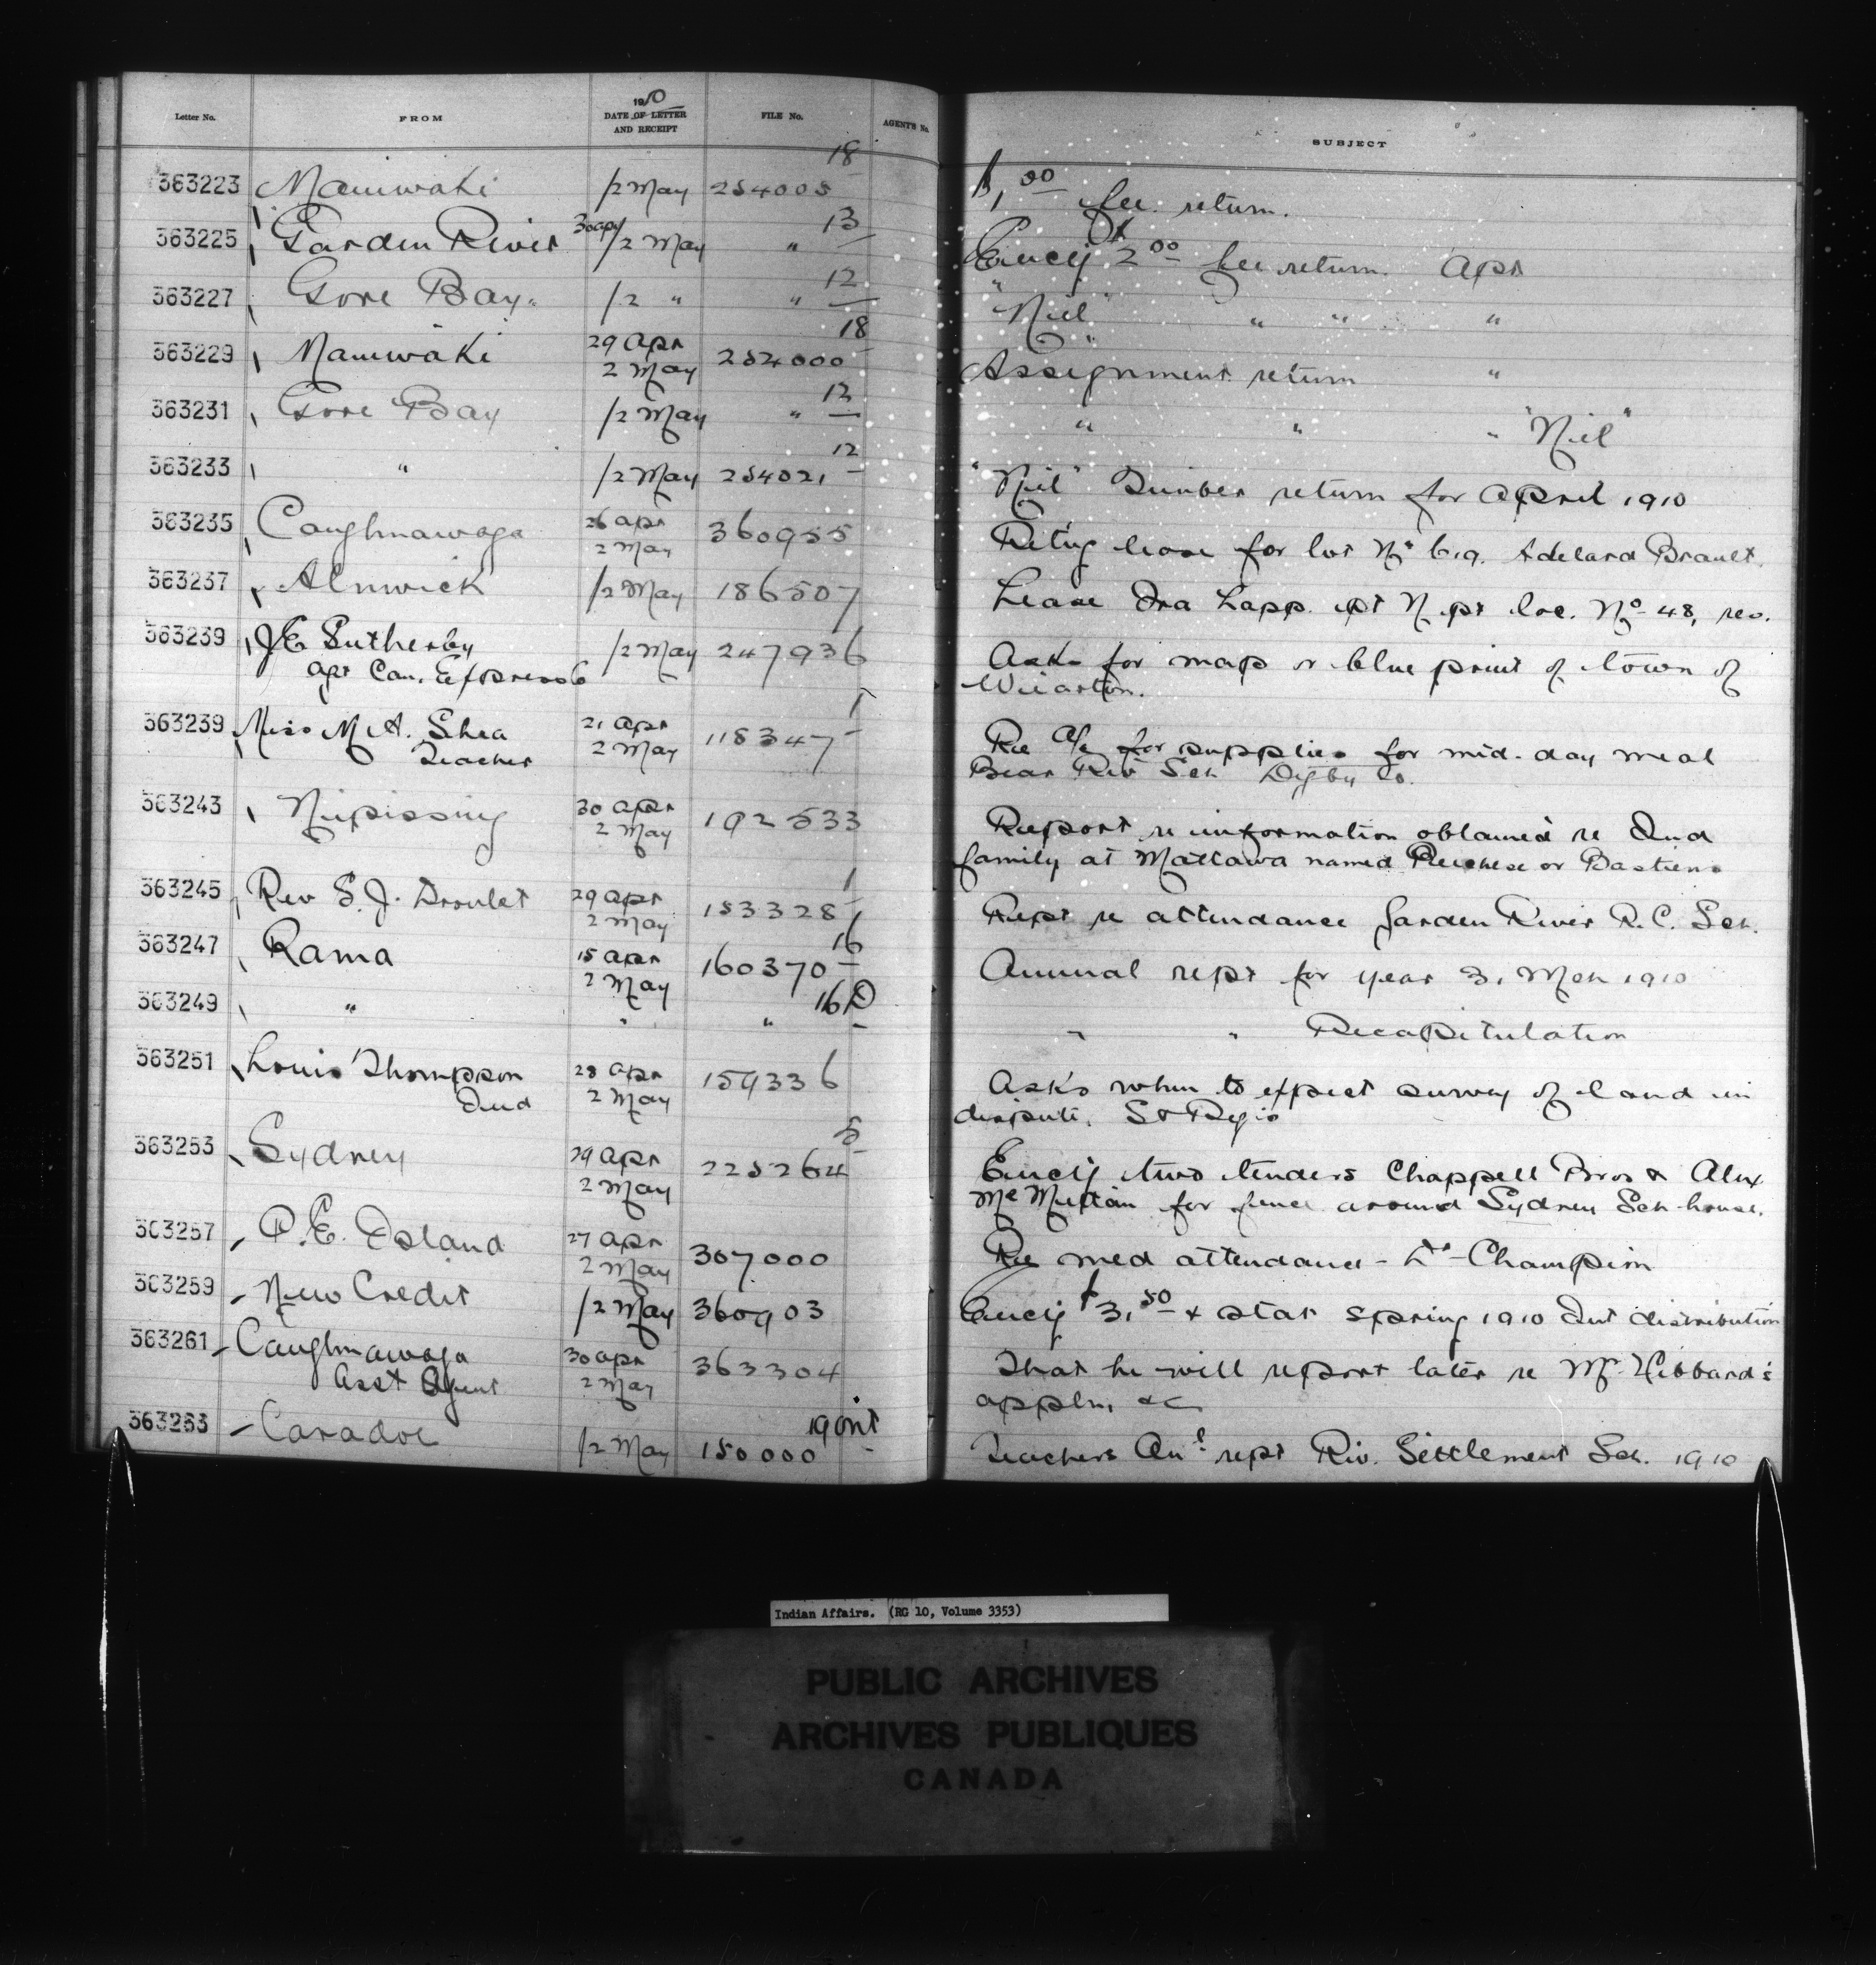 Letter No. FROM 1910 DATE OF LETTER AND RECEIPT FILE No. AGENT'S No. SUBJECT
363223 Maniwaki /2 May 254005 18 $1,00 fee return.
363225 Garden River 30 apr/2 May " 13 Encly $2 00 fee return. Apr
363227 Gore Bay. /2 " " 12 "Nil" " " "
363229 Maniwaki 29 Apr 2 May 252000 18 Assignment return "
363231 Gore Bay /2 May " 12 " " " "Nil"
363233 " /2 May 254021 12 "Nil" Timber return for April 1910
363235 Caughnawaga 26 apr 2 May 360955 Retng lease for lot No 619. Adelard Brault.
363237 Alnwick /2 May 186507 Lease Ira Lapp. pt N. pt loc. No 48, res.
363239 J E Sutherby /2 May 247936 Asks for map or blue print of town of
agt Can. Express Co Wiarton.
363239 Miss M A. Shea 21 apr 2 May 118347 1 Re a/c for supplies for mid-day meal
Teacher Bear Riv Sch Digby Co.
363243 Nipissing 30 apr 2 May 192533 Report re information obtained re Ind
family at Mattawa named or Bastiens
363245 Rev S. J. Droulet 29 apr 2 May 153328 1 Rept re attendance Garden River R.C. Sch.
363247 Rama 15 apr 2 May 160370 16 Annual rept for year 31 Mch 1910
363249 " " " 16 D " " Recapitulation
363251 Louis Thompson 28 apr 2 May 159336 Asks when to expect survey of land in
Ind dispute. St Regis
363253 Sydney 29 apr 2 May 225264 5 Encly two tenders Chappell Bros & Alex
McMullan for fence around Sydney Sch-house.
363257 P. E. Island 27 apr 2 May 307000 Re med attendance - Dr Champion
363259 New Credit /2 May 360903 Encly $3.50 & stat spring 1910 Int distribution
363261 Caughnawaga 30 apr 2 May 363304 That he will report later re Mr Hibbard's
Asst Agent appln, &c
363263 Caradoc /2 May 150000 19 ont Teachers Anl rept Riv. Settlement Sch. 1910
Indian Affairs. (RG 10, Volume 3353)
PUBLIC ARCHIVES
ARCHIVES PUBLIQUES
CANADA